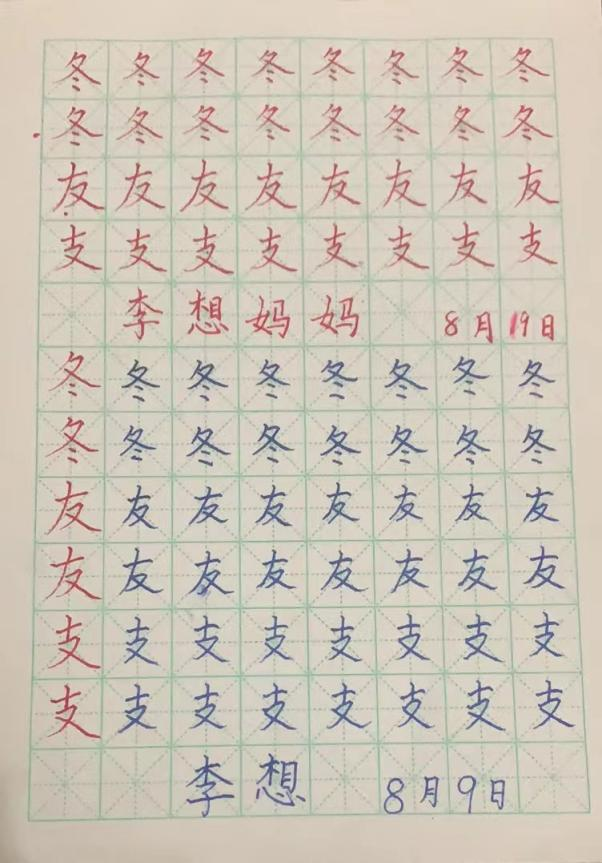 冬冬冬冬冬冬冬冬
冬冬冬冬冬冬冬冬
友友友友友友友友
支支支支支支支支
李想妈妈 8月19日
冬冬冬冬冬冬冬冬
冬冬冬冬冬冬冬冬
友友友友友友友友
友友友友友友友友
支支支支支支支支
支支支支支支支支
李想 8月9日